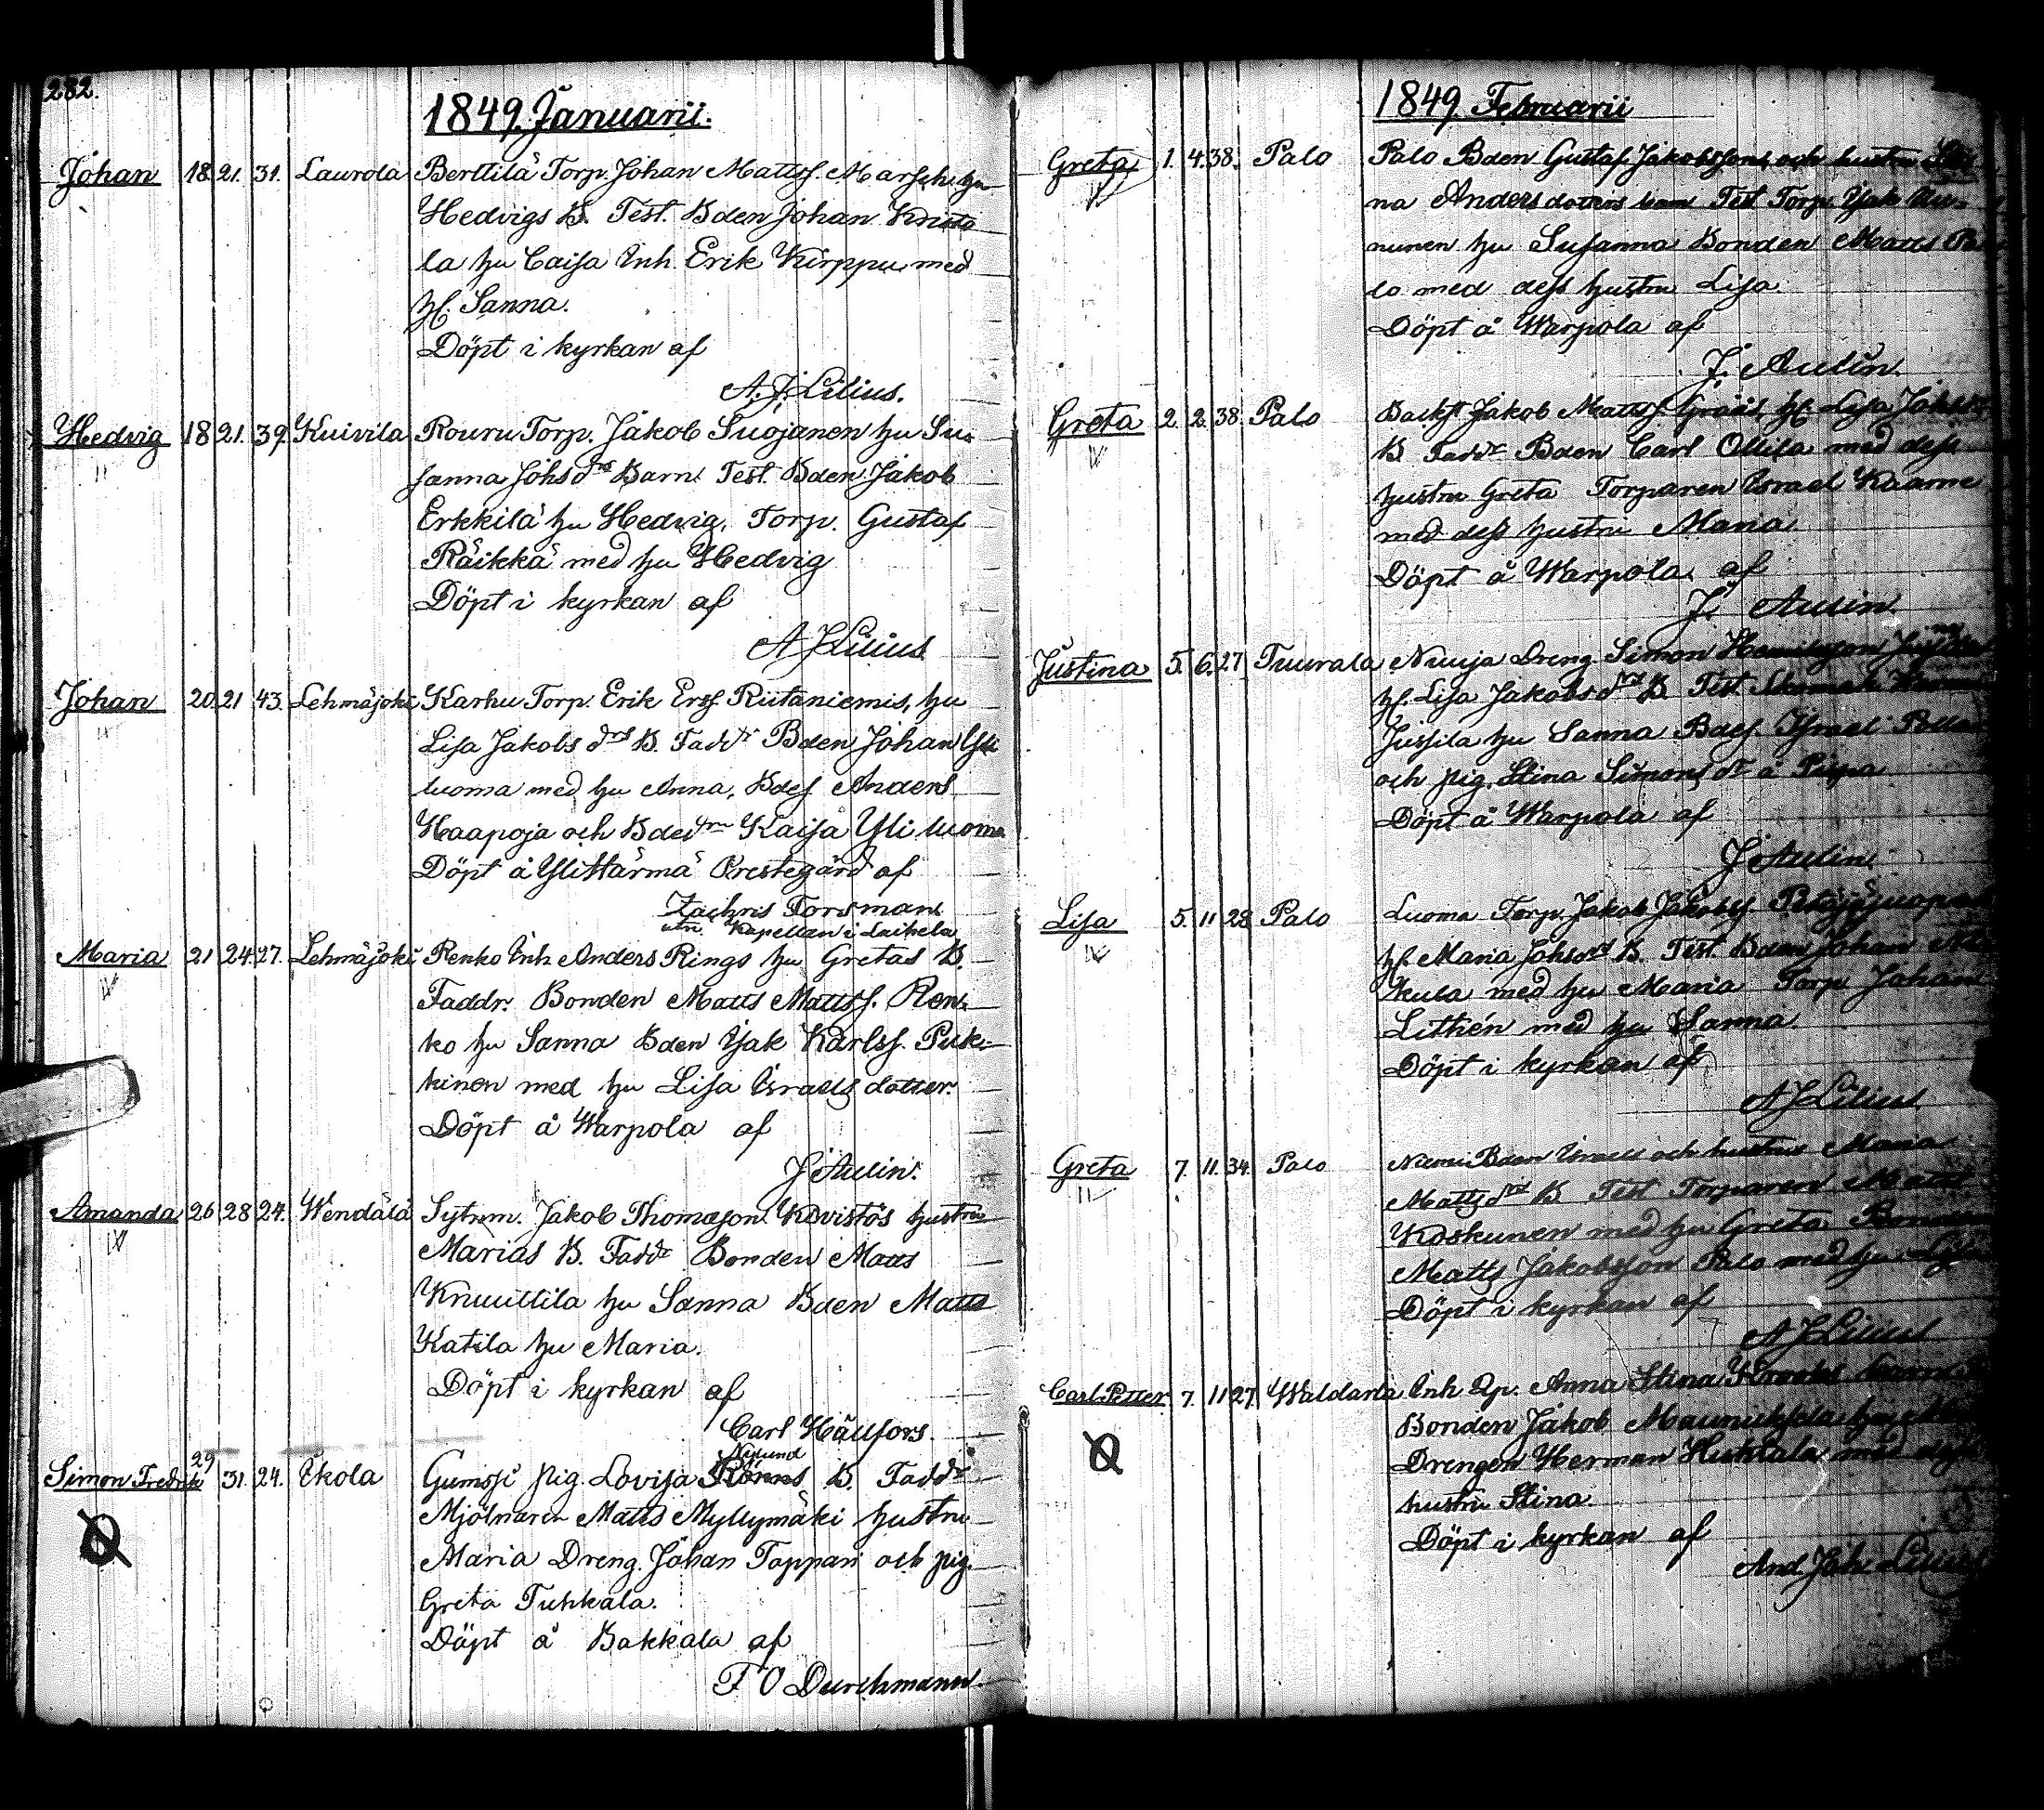 282.
1849. Januarii.
Johan 18. 21. 31. Laurola Berttilä Torp. Johan Mattss. Marsch hu
Hedvigs B. Test. Bden Johan Knuto
la hu Caisa Inh. Erik Kirppu med
H. Sanna.
Döpt i kyrkan af
A. J. Lilius.
Hedvig 18 21. 39. Kuivila Rouru Torp. Jakob Suojanen hu Su-
sanna Johsdrs Barn Test. Bden Jakob
Erkkilä hu Hedvig, Torp. Gustaf
Räikkä med hu Hedvig
Döpt i kyrkan af
A J Lilius
Johan 20. 21 43. Lehmäjoki Karhu Torp. Erik Erss. Riitaniemis, hu
Lisa Jakobs drs B. Faddr Bden Johan Yli
luoma med hu Anna, Bdes. Anders
Haapoja och Bdes Kaisa Yliluoma
Döpt å Ylihärmä Prestegård af
Zachris Forsman
Kapellan i Laihela
Maria 21 24 27. Lehmäjoki Renko Inh Anders Rings hu Gretas B.
Faddr. Bonden Matts Mattss. Ren-
ko hu Sanna Bden Isak Karlss. Puk-
kinen med hu Lisa Israels dotter.
Döpt å Warpola af
J Aulin.
Amanda 26 28 24. Wendälä Sytnm. Jakob Thomasson Kvistös hustru
Marias B. Faddr Bonden Matts
Knuuttila hu Sanna Bden Matts
Katila hu Maria.
Döpt i kyrkan af
Carl Hällfors.
Nylund
Simon Fredrik 29 31. 24. Ikola Gumsji pig. Lovisa Rönns B. Faddr
Mjölnaren Matts Myllymäki hustru
Maria Dreng. Johan Toppari och pig.
Greta Tuhkala.
Döpt å Bakkala af
F O Durchmann.
1849. Februarii
Greta 1. 4. 38. Palo Palo Bden Gustaf Jakobssons och hustru
na Andersdotters barn Test Torp. Isak An-
nunen hu Susanna Bonden Matts Pa
lo med dess hustru Lisa.
Döpt å Warpola af
J. Aulin.
Greta 2. 2. 38. Palo Backst Jakob Mattss. Grääs, H. Lisa
B Faddr Bden Carl Ollila med dess
hustru Greta Torparen Israel Kaarne
med dess hustru Maria.
Döpt å Warpola af
J. Aulin.
Justina 5. 6. 27 Tuurala Nuuja Dreng. Simon
H. Lisa Jakobs drs B Test.
Jussila hu Sanna Bdes. Israel
och pig. Stina Simons dr å
Döpt å Warpola af
J Aulin
Lisa 5. 11 28 Palo Luoma Torp. Jakob Jakobss.
H. Maria Johsdrs B. Test. Bden Johan
kula med hu Maria Torp Johan
Lithén med hu Sanna.
Döpt i kyrkan af
A J Lilius
Greta 7. 11. 34. Palo Niemi Bden Israels och hustrus Maria
Mattsdrs B Test Torparen Matts
Koskunen med hu Greta Bonden
Matts Jakobsson Palo med hu
Döpt i kyrkan af
A J Lilius
Carl Petter 7. 11 27 Waldarla Inh Qp. Anna Stina
Bonden Jakob Maunuksela hu
Drengen Herman Huhtala med dess
hustru Stina.
Döpt i kyrkan af
And. Joh. Lilius